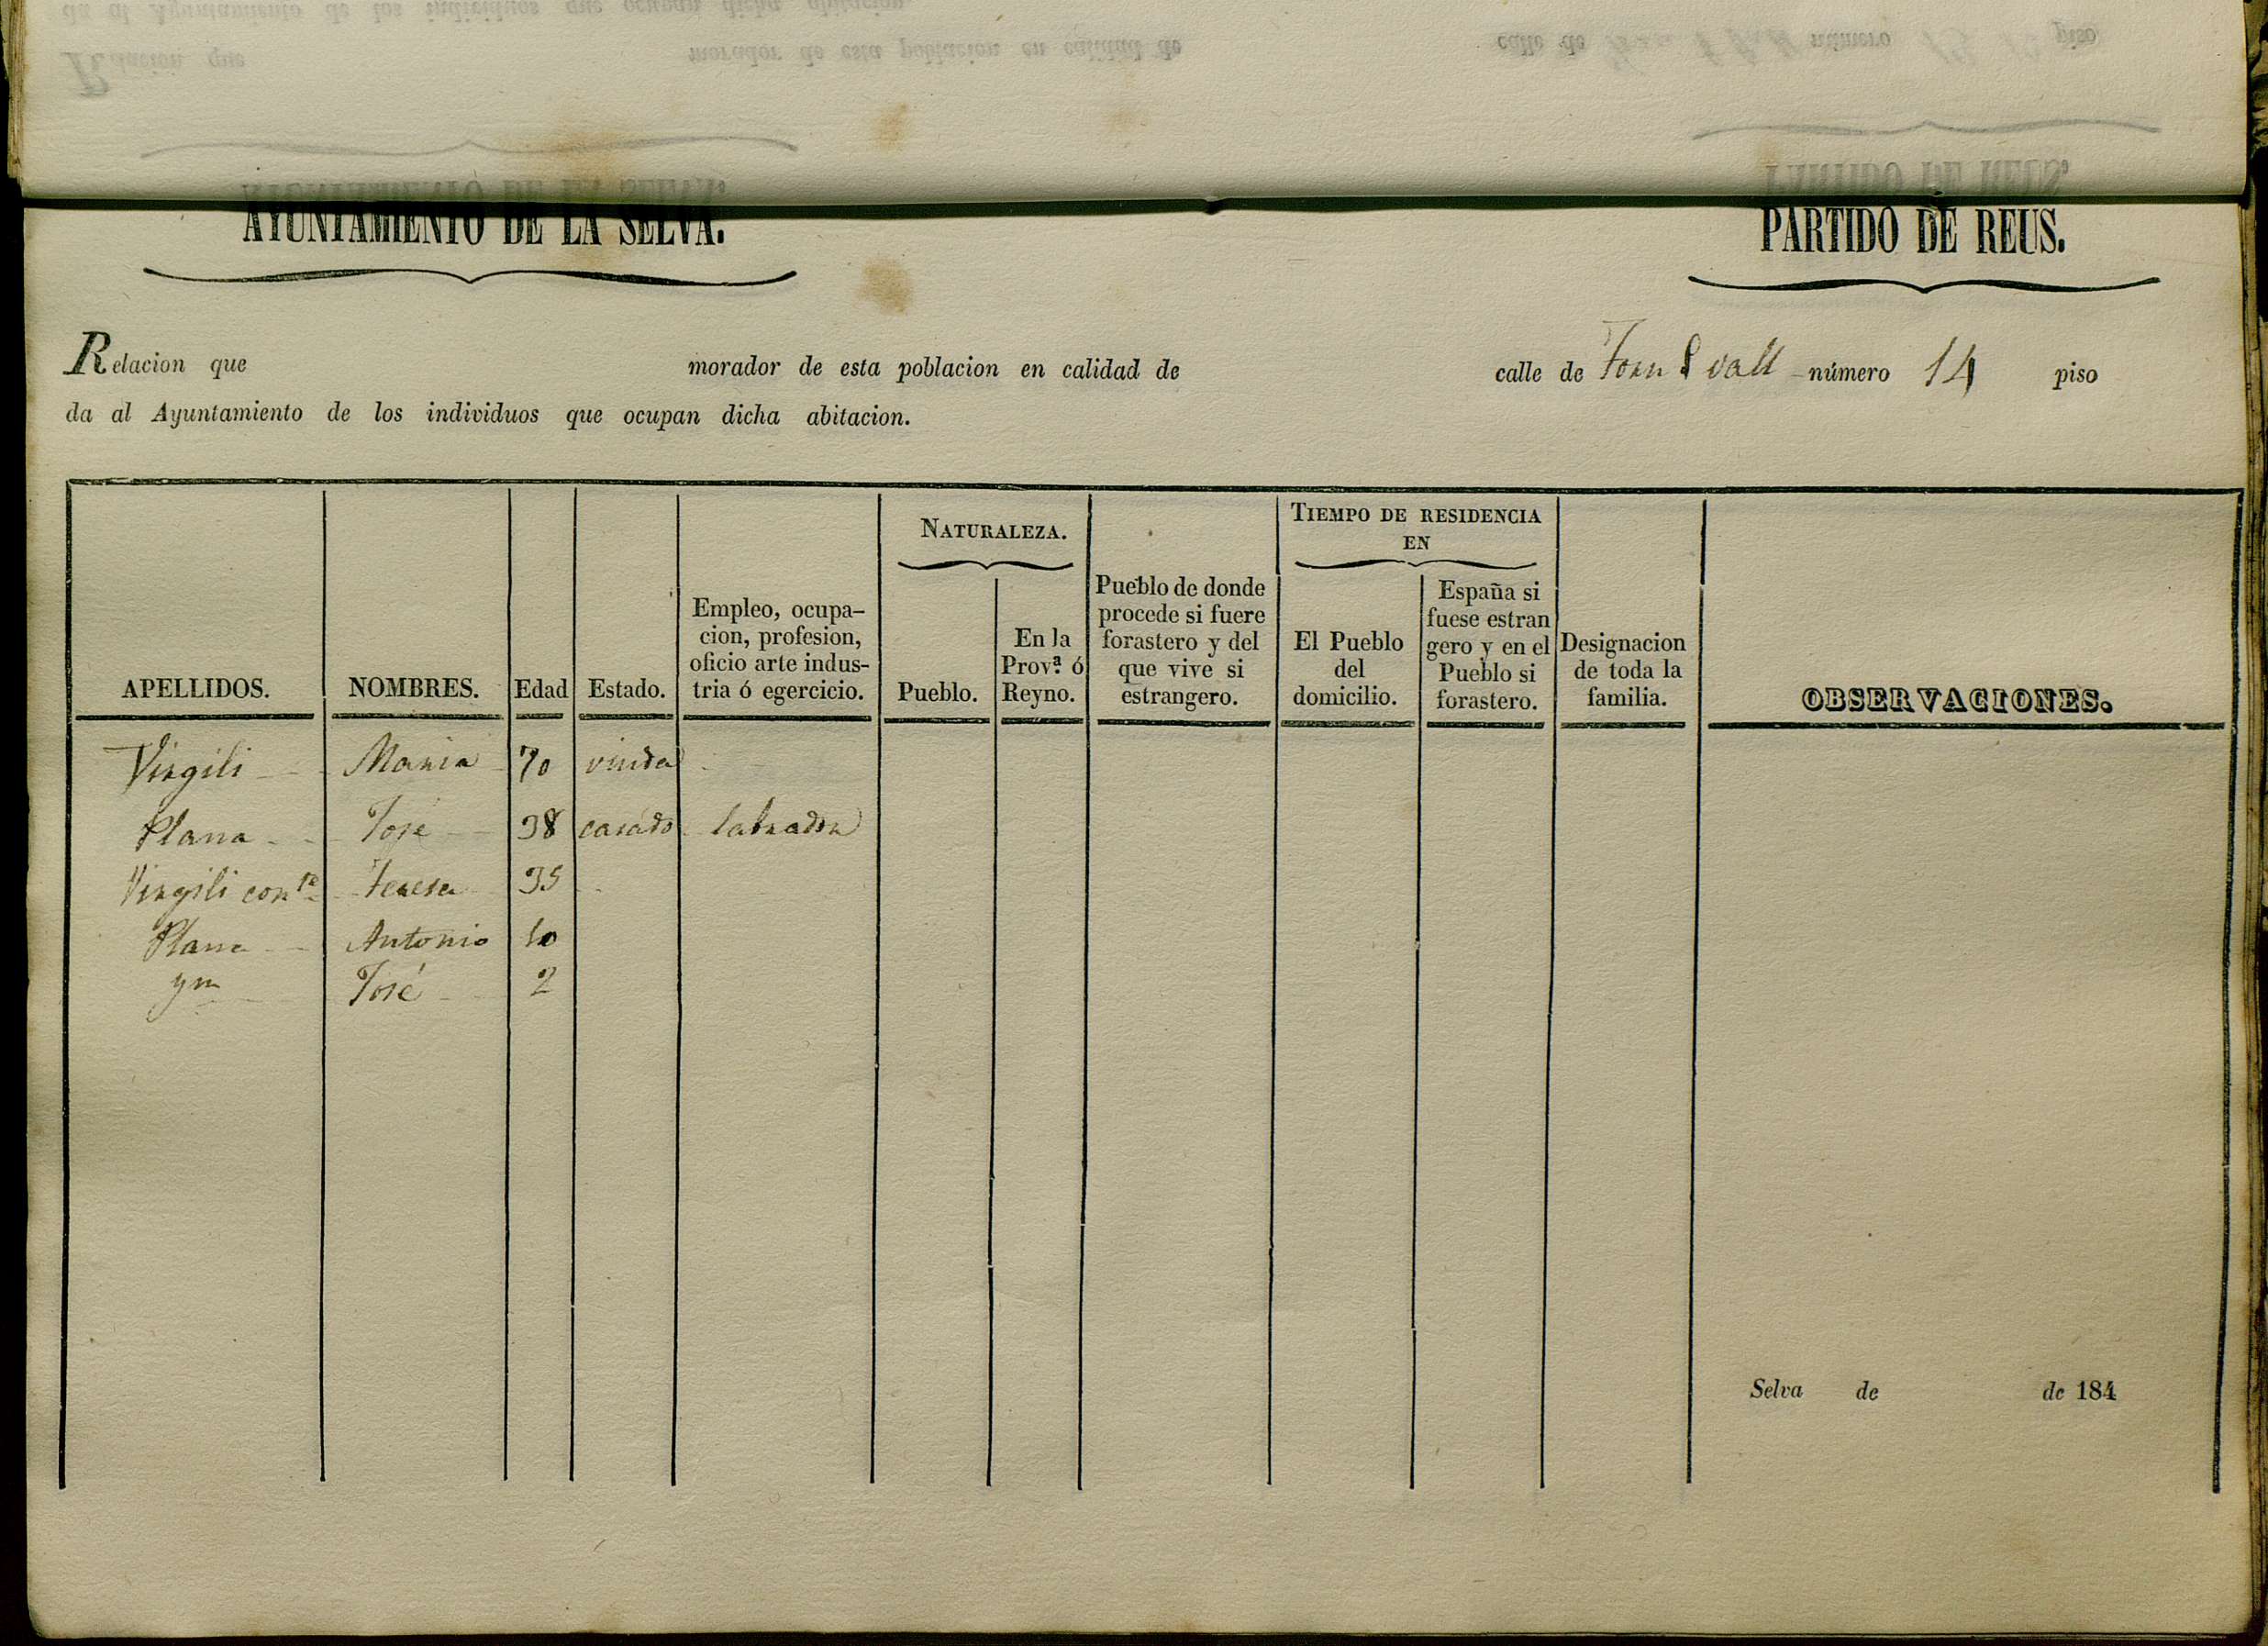 AYUNTAMIENTO DE LA SELVA.
PARTIDO DE REUS.
Relacion que morador de esta poblacion en calidad de calle de Forn vall número 14 piso
da al Ayuntamiento de los individuos que ocupan dicha abitacion.
APELLIDOS.
NOMBRES.
Edad
Estado.
Empleo, ocupa-
cion, profesion,
oficio arte indus-
tria ó egercicio.
NATURALEZA.
Pueblo.
En la
Prov.ª ó
Reyno.
Pueblo de donde
procede si fuere
forastero y del
que vive si
estrangero.
TIEMPO DE RESIDENCIA
EN
El Pueblo
del
domicilio.
España si
fuese estran
gero y en el
Pueblo si
forastero.
Designacion
de toda la
familia.
OBSERVACIONES.
Virgili Maria 70 viuda
Plana Jose 38 casado labrador
Virgili con.te Teresa 35
Plana Antonio 10
ym José 2
Selva de de 184